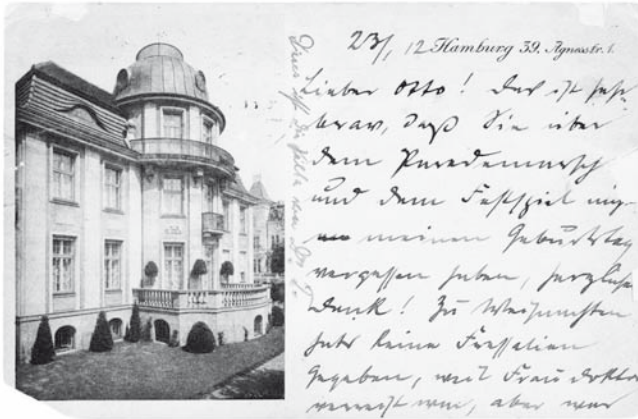 23/12 Hamburg 39. Agnesstr. 1.
Lieber Otto! Das ist sehr
brav, daß Sie über
dem Parademarsch
und dem Festspiel nicht
meinen Geburtstag
vergessen haben, herzlichen
Dank! Zu Weihnachten
hats keine Fressalien
gegeben, weil Frau Doktor
verreist war, aber war
Dies ist die Villa von Dr.